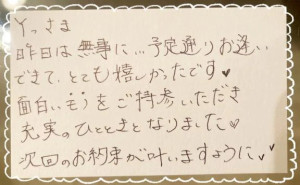 Yっさま
昨日は無事に…予定通りお逢い
できて、とても嬉しかったです♥
面白いモノをご持参いただき
充実のひとときとなりました♥
次回のお約束が叶いますように♥